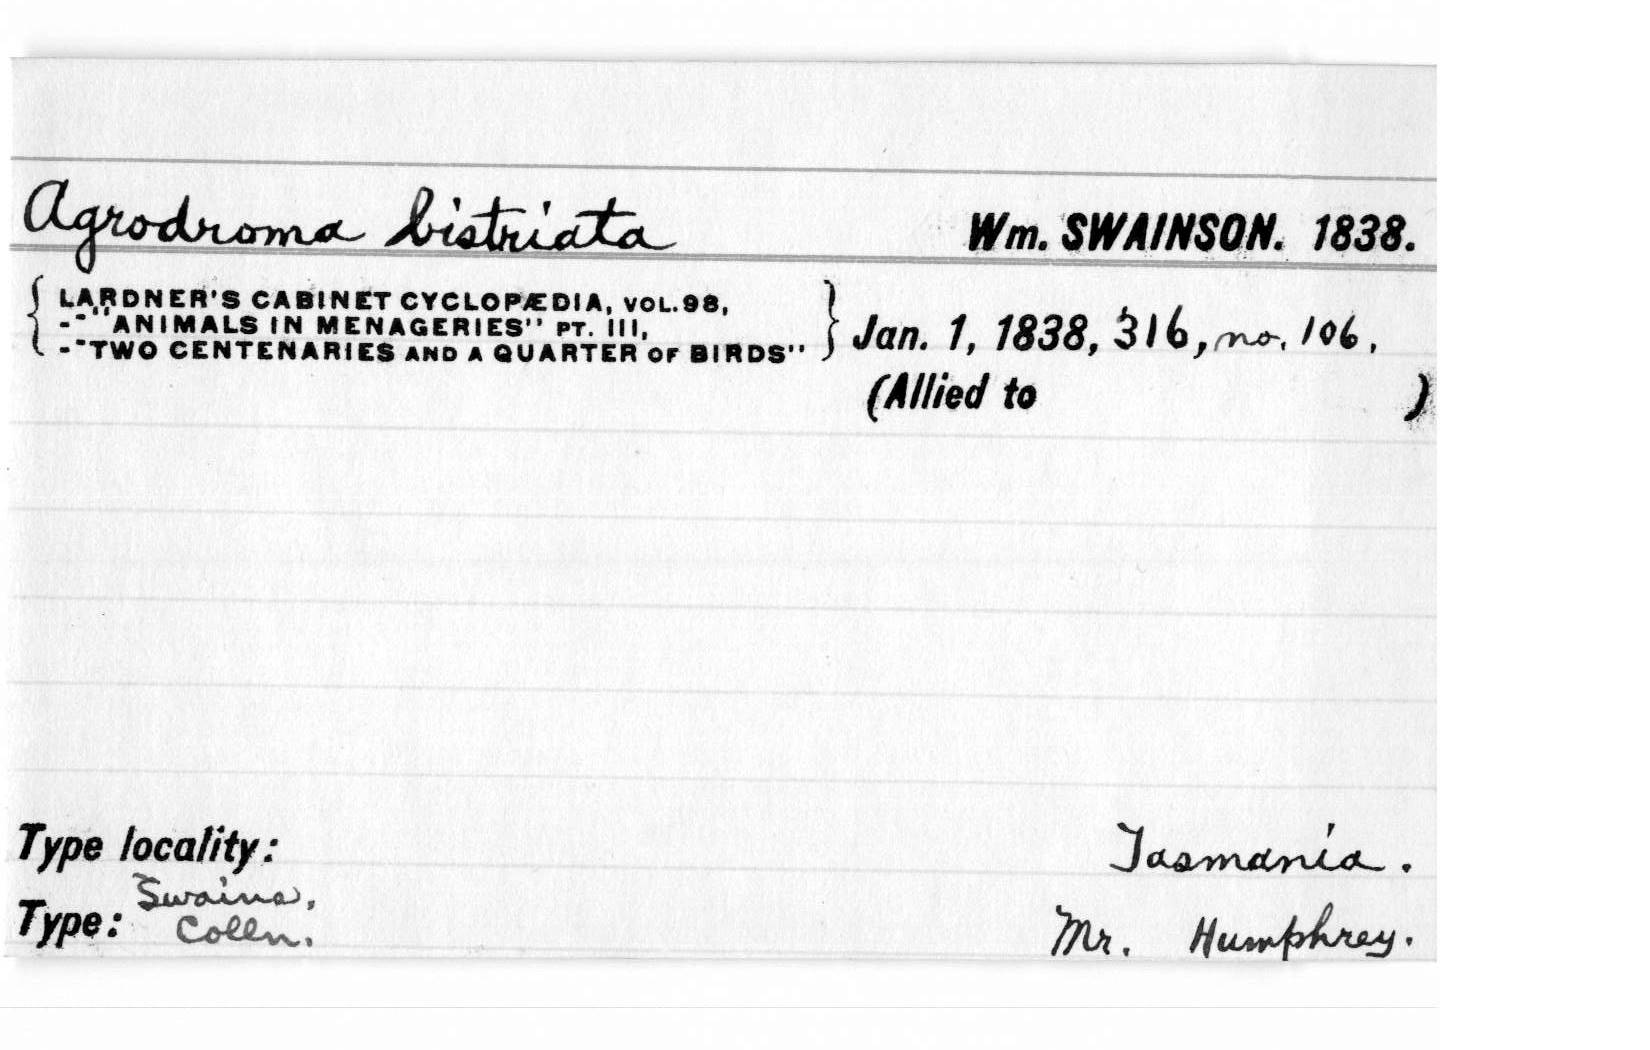 Agrodroma bistriata Wm. SWAINSON. 1838.
{ LARDNER'S CABINET CYCLOPÆDIA, VOL. 98, }
--"ANIMALS IN MENAGERIES" PT. III,
--"TWO CENTENARIES AND A QUARTER OF BIRDS" Jan. 1, 1838, 316, no. 106.
(Allied to )
Type locality: Tasmania.
Swains.
Type: Colln. Mr. Humphrey.